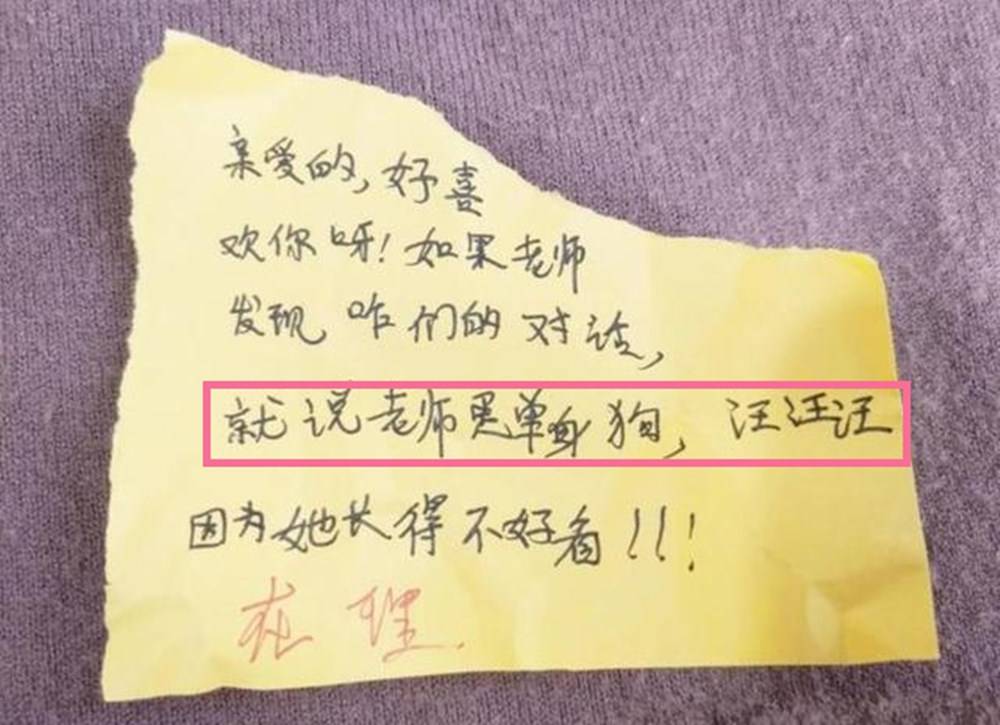 亲爱的，好喜
欢你呀！如果老师
发现咱们的对话，
就说老师是单身狗，汪汪汪
因为她长得不好看！！！
在理.